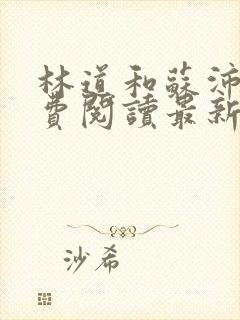 林道和蘇沛
費閱讀最新
沙希